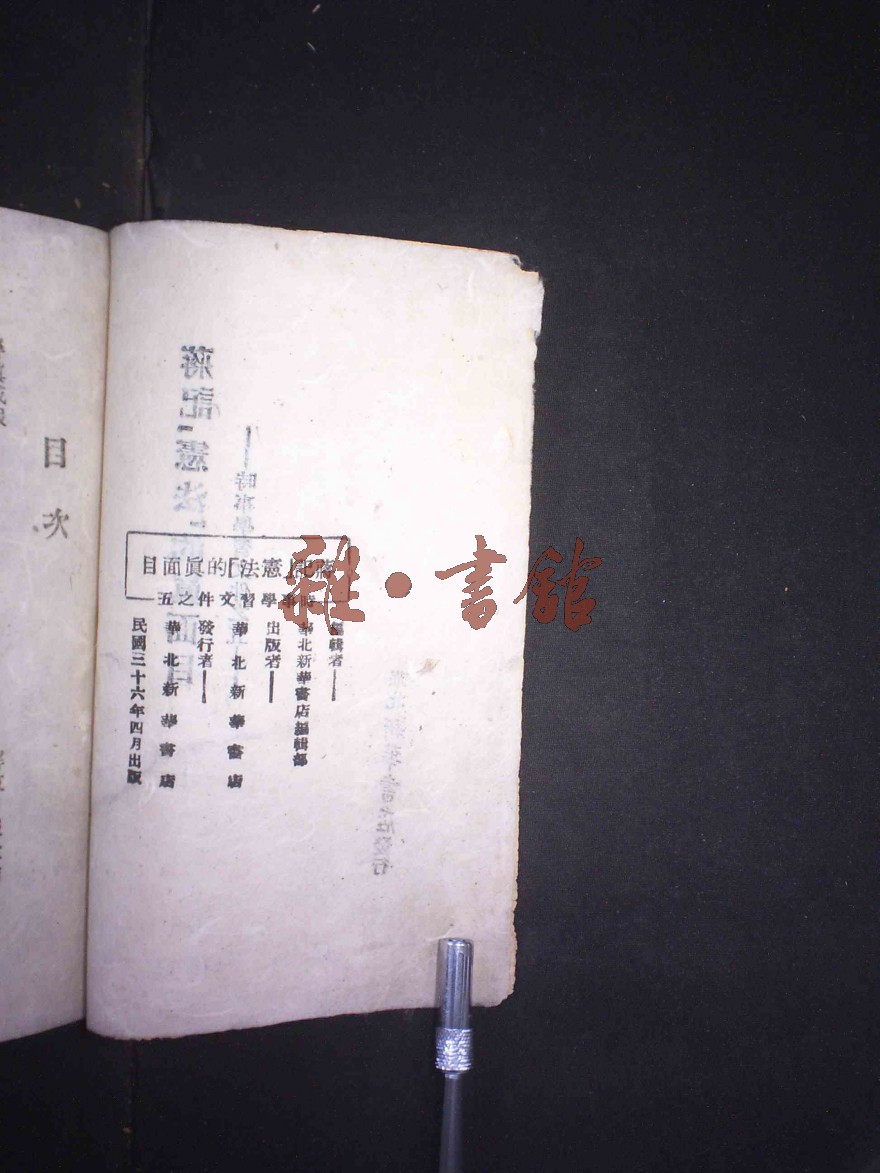 蔣記「憲法」的眞面目
時事學習文件之五
編輯者
華北新華書店編輯部
出版者
華北新華書店
發行者
華北新華書店
民國三十六年四月出版
目次
雜·書館